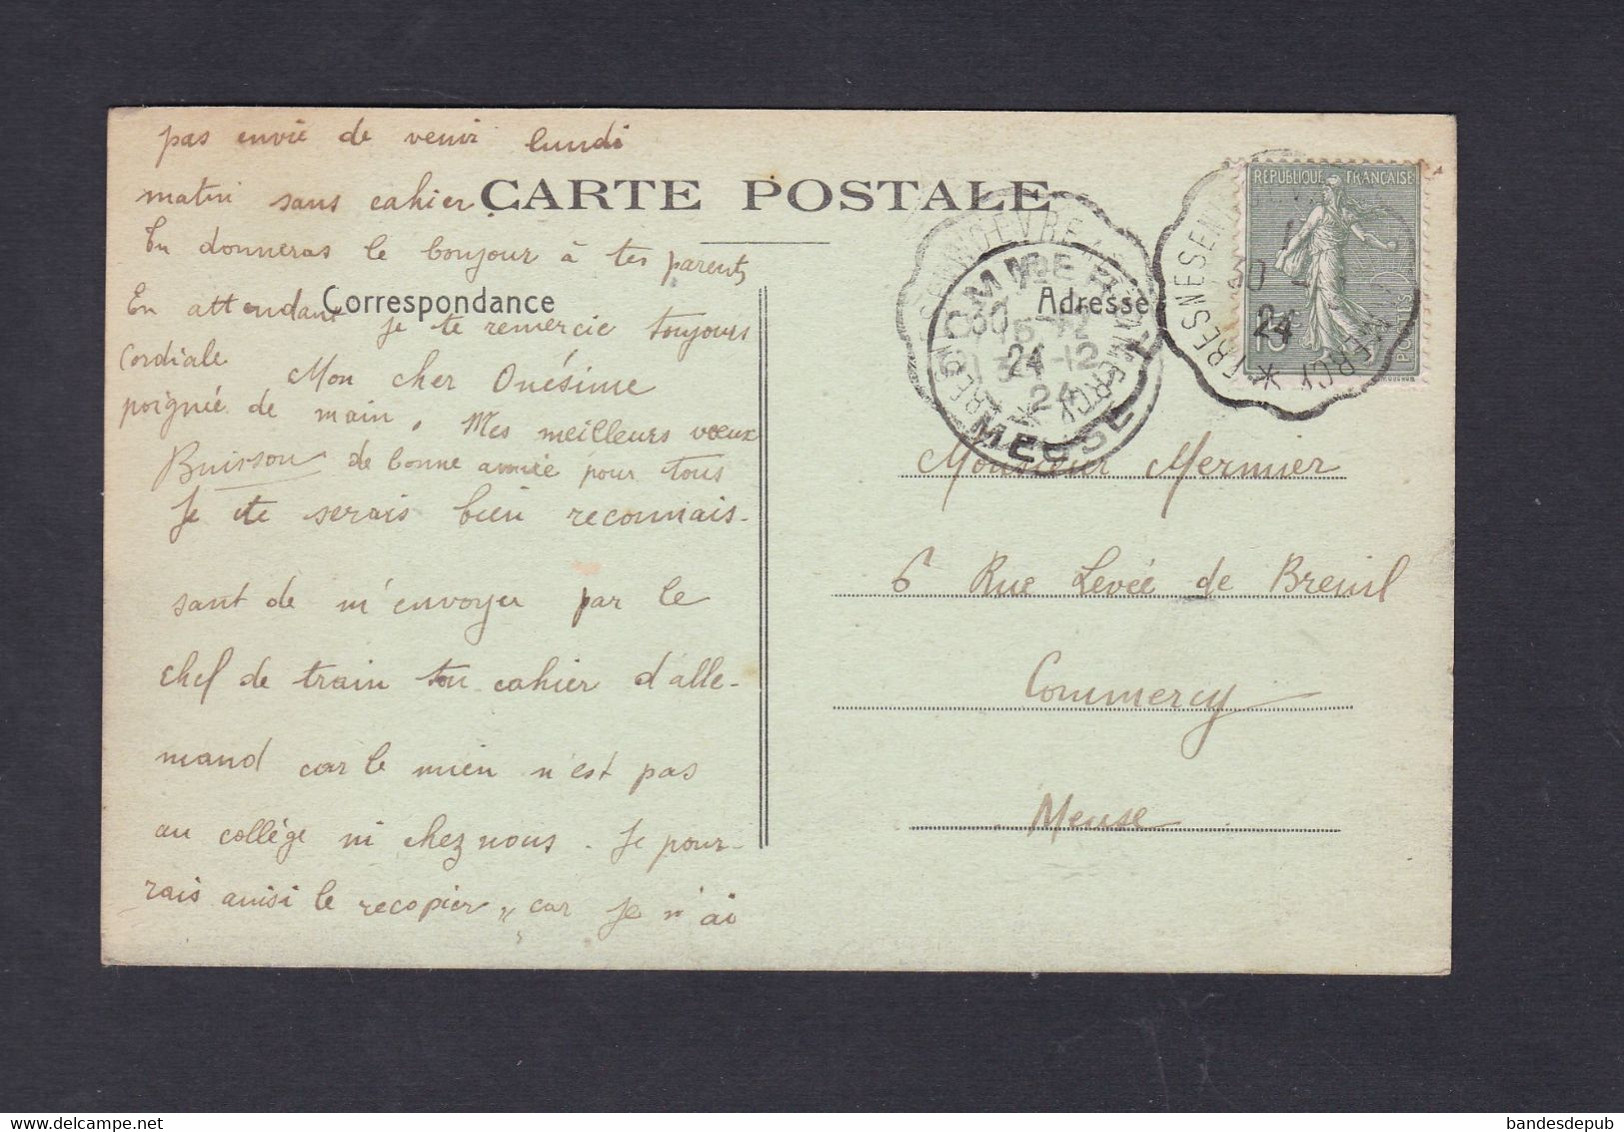 pas envie de venir lundi
matin sans cahier.
CARTE POSTALE
Tu donneras le bonjour à tes parents
En attendant je te remercie toujours
Correspondance
Cordiale
Mon cher Onésime
poignée de main. Mes meilleurs vœux
Buisson de bonne année pour tous
Je te serais bien reconnais-
sant de m'envoyer par le
chef de train ton cahier d'alle-
mand car le mien n'est pas
au collège ni chez nous. Je pour-
rais aussi le recopier, car je n'ai
Adresse
Monsieur Mermier
6 Rue Levée de Breuil
Commercy
Meuse
REPUBLIQUE FRANÇAISE
POSTES
COMMERCY
30 -12
24
MEUSE
FRESNES EN
24
MERCY
bandesdepub
www.delcampe.net